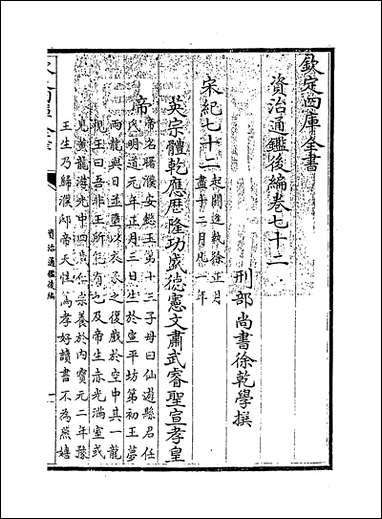 欽定四庫全書
資治通鑑後編卷七十二
刑部尚書徐乾學撰
宋紀七十二起閼逢執徐正月
盡十二月凡一年
英宗體乾應歷隆功盛德憲文肅武睿聖宣孝皇
帝帝名曙濮安懿王第十三子母曰仙遊縣君任
氏明道元年正月三日生於宣平坊第初王夢
兩龍與日並墮以衣承之後戲於空中其一龍
視王曰吾非王所能有也及帝生赤光滿室或
見黃龍游光中四歲仁宗養於內寶元二年豫
王生乃歸濮邸帝天性篤孝好讀書不為燕嬉
資治通鑑後編